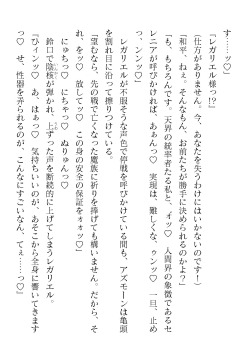 す……ッ♡」
「レガリエル様っ!?」
(仕方がありません。今、あなたを失うわけにはいかないのです！)
「和平、ねぇ。そんなもん、お前たちが勝手に決められるのかよ?」
「も、もちろんです。天界の統率者たる私と、イッ♡　人間界の象徴であるセ
レニアが呼びかければ、あぁんっ♡　実現は、難しくな、ウンッ♡　一旦、止め
っ、ンンンっ♡」
　レガリエルが不服そうな声色で停戦を呼びかけている間も、アズモーンは亀頭
を割れ目に沿って擦りつけている。
「望むなら、先の戦で亡くなった魔族に祈りを捧げても構いません。だから、そ
れ、をッ♡　放してッ♡　この身の安全の保証をォォッ♡」
　にゅちっ♡　にちゃっ♡　ぬりゅんっ♡
　鈴口で陰核が弾かれ、上ずった声を断続的に上げてしまうレガリエル。
「ひィンッ♡　あっ、はぁっ♡　気持ちいいのが、あそこから全身に響いてきます
っ♡　せ、性器を弄られるのが、こんなにすごいなん、てぇ……っ♡」